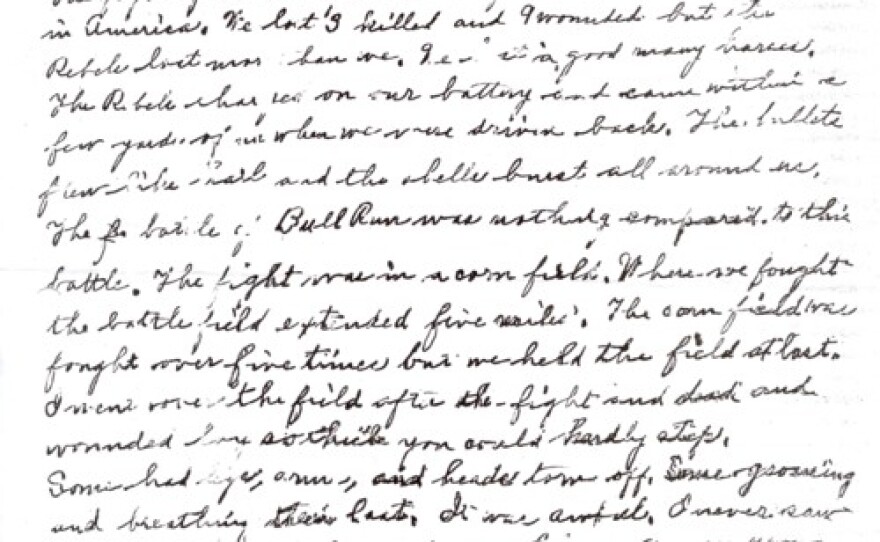 in America. We lost 3 killed and 9 wounded but the
Rebels lost more than we. a good many horses.
The Rebels charged on our battery and came within a
few yards of us when we were driven back. The bullets
flew like hail and the shells burst all around us.
The battle of Bull Run was nothing compared to this
battle. The fight was in a corn field. Where we fought
the battle field extended five miles. The corn field was
fought over five times but we held the field at last.
I went over the field after the fight and dead and
wounded lay so thick you could hardly step.
Some had legs, arms, and heads torn off. Some groaning
and breathing their last. It was awful. I never saw